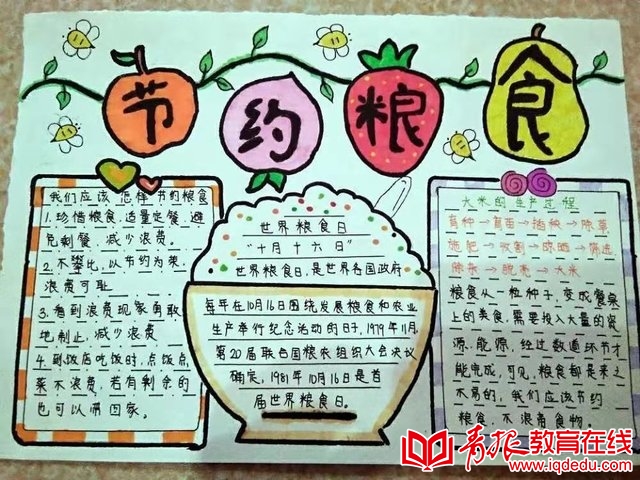 节约粮食
我们应该怎样节约粮食
1.珍惜粮食,适量定餐,避
免剩餐,减少浪费。
2.不攀比,以节约为荣,
浪费可耻。
3.看到浪费现象勇敢
地制止,减少浪费
4.到饭店吃饭时,点饭点
菜不浪费,若有剩余的
也可以带回家。
世界粮食日
"十月十六日"
世界粮食日,是世界各国政府
每年在10月16日围绕发展粮食和农业
生产举行纪念活动的日子,1979年11月,
第20届联合国粮农组织大会决议
确定,1981年10月16日是首
届世界粮食日。
大米的生产过程
育种→育苗→插秧→除草
施肥→收割→晾晒→筛选
除杂→脱壳→大米
粮食从一粒种子,变成餐桌
上的美食,需要投入大量的资
源,能源,经过数道环节才
能完成,可见,粮食都是来之
不易的,我们应该节约
粮食,不浪费食物。
青报教育在线
www.iqdedu.com